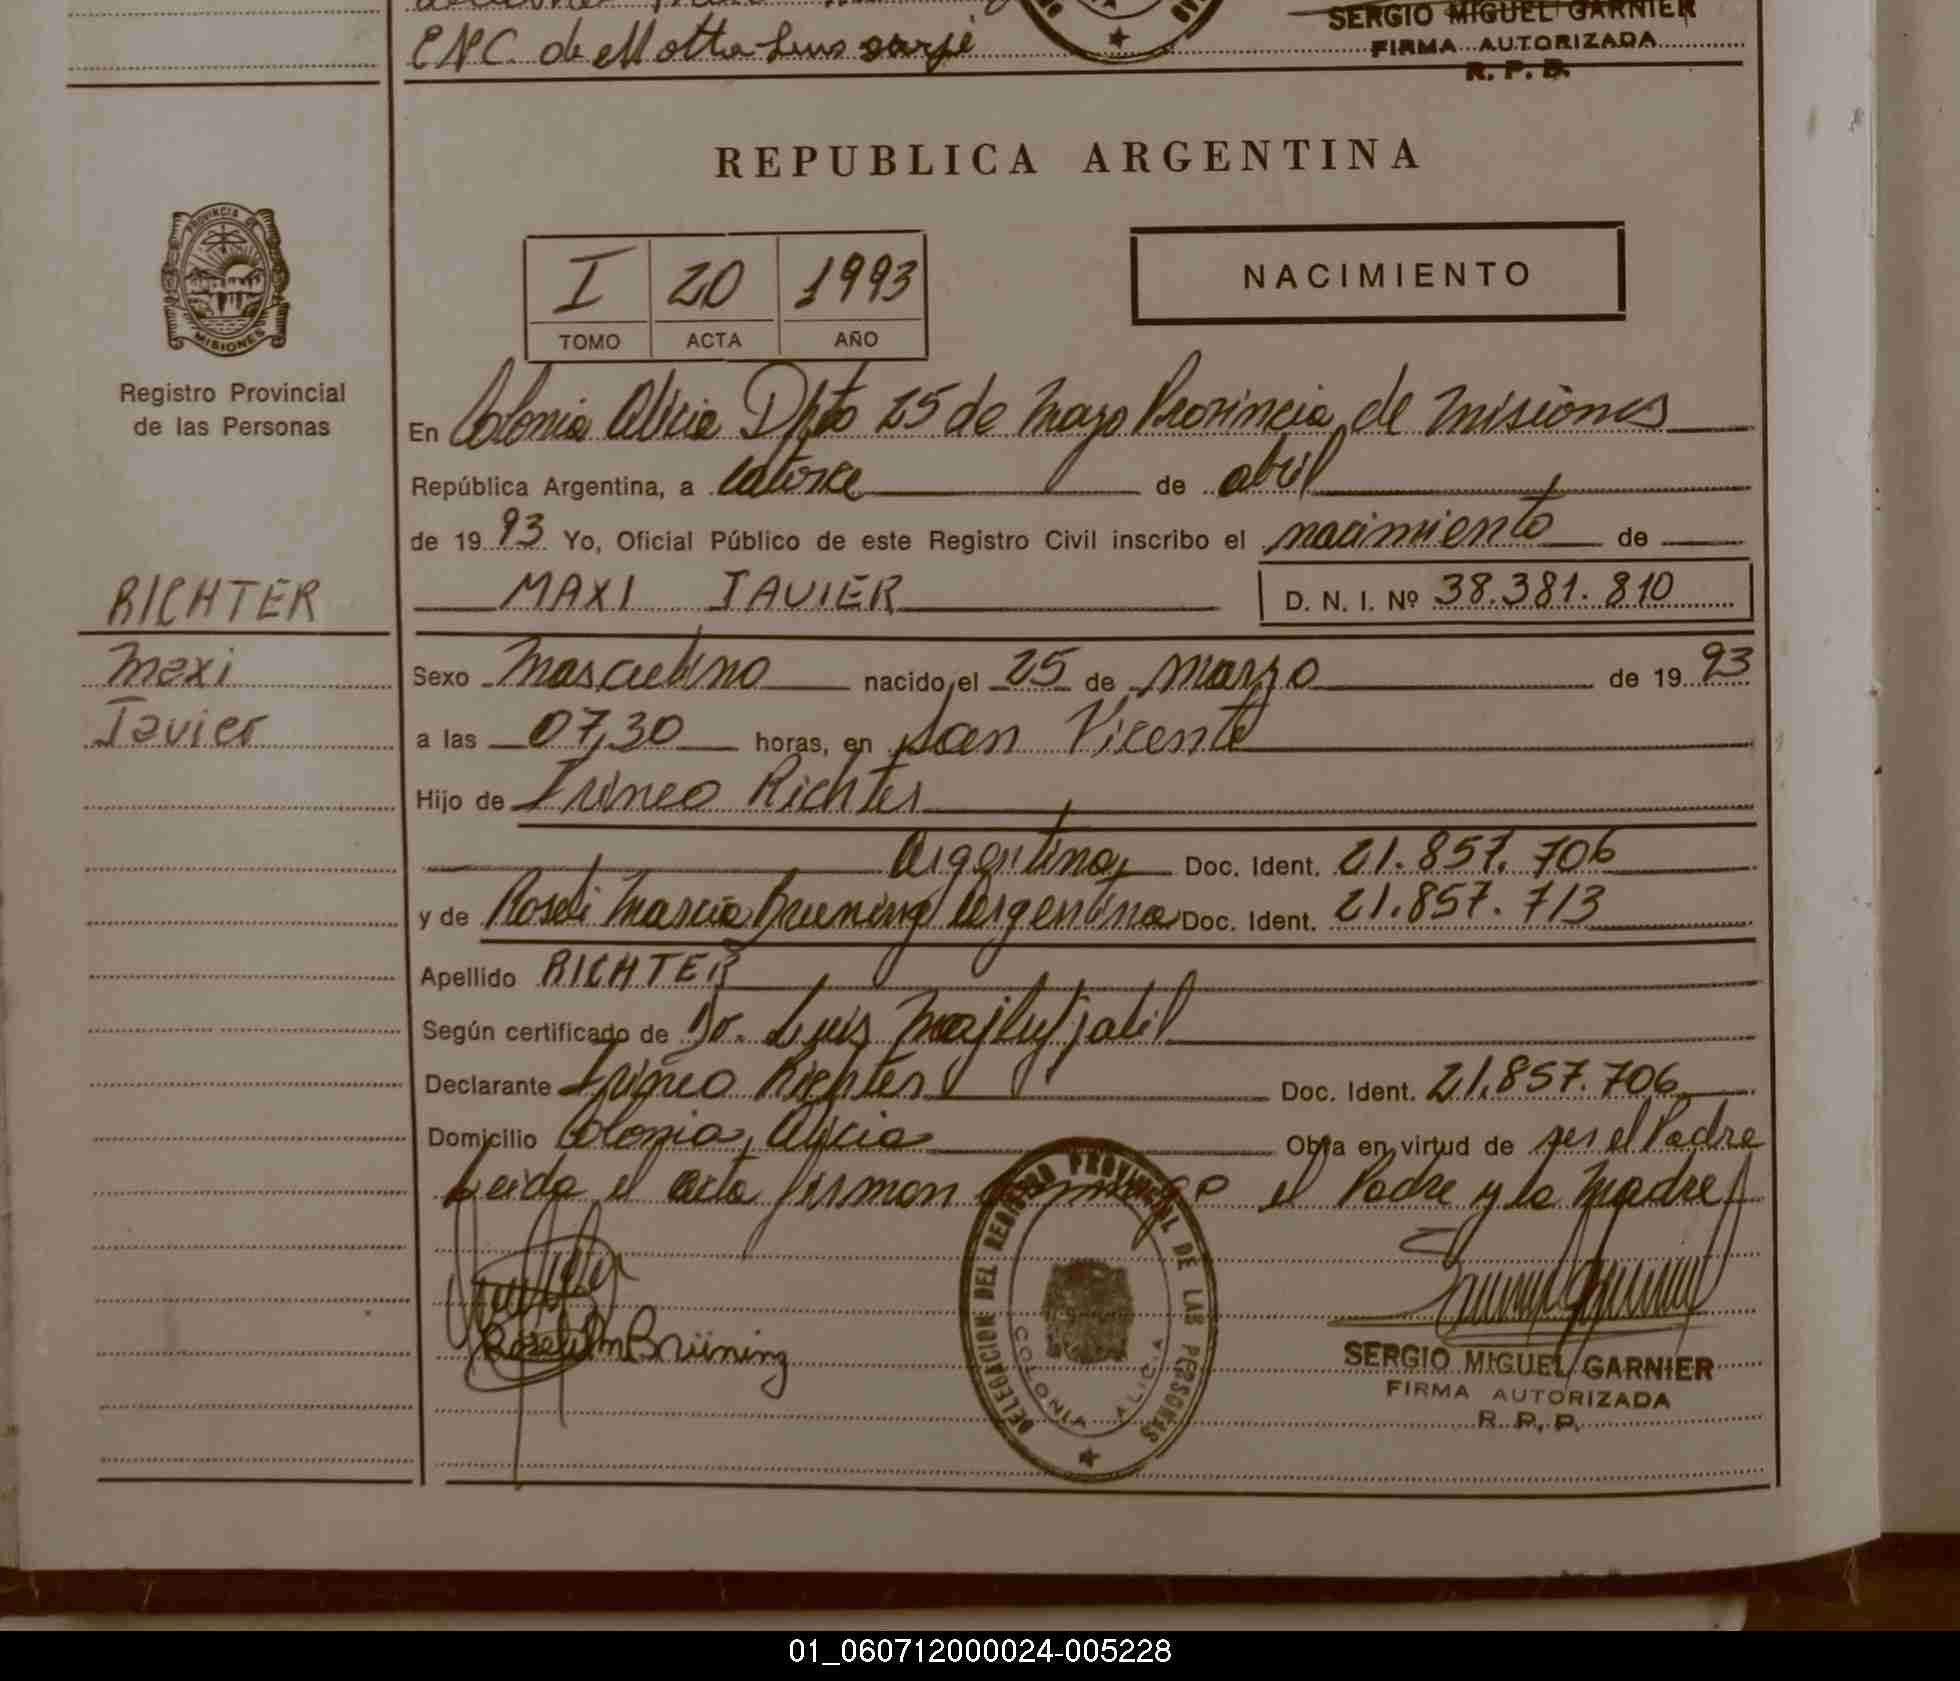 E.N.C. de Motta Luis
SERGIO MIGUEL GARNIER
FIRMA AUTORIZADA
R. P. P.
REPUBLICA ARGENTINA
PROVINCIA DE
MISIONES
Registro Provincial
de las Personas
I 20 1993
TOMO ACTA AÑO
NACIMIENTO
En Colonia Alicia Dpto 25 de Mayo Provincia de Misiones
República Argentina, a catorce de abril
de 1993 Yo, Oficial Público de este Registro Civil inscribo el nacimiento de
RICHTER
MAXI JAVIER D. N. I. Nº 38.381.810
Maxi
Sexo Masculino nacido el 25 de marzo de 1993
Javier
a las 07,30 horas, en San Vicente
Hijo de Irineo Richter
Argentino, Doc. Ident. 21.857.706
y de Roseli Maria Bruning Argentina Doc. Ident. 21.857.713
Apellido RICHTER
Según certificado de Dr. Luis
Declarante Irineo Richter Doc. Ident. 21.857.706
Domicilio Colonia Alicia Obra en virtud de ser el Padre
Leida el acta firman conmigo el Padre y la Madre
Roseli M Brüning
DELEGACION DEL REGISTRO PROVINCIAL DE LAS PERSONAS
COLONIA ALICIA
SERGIO MIGUEL GARNIER
FIRMA AUTORIZADA
R. P. P.
01_060712000024-005228